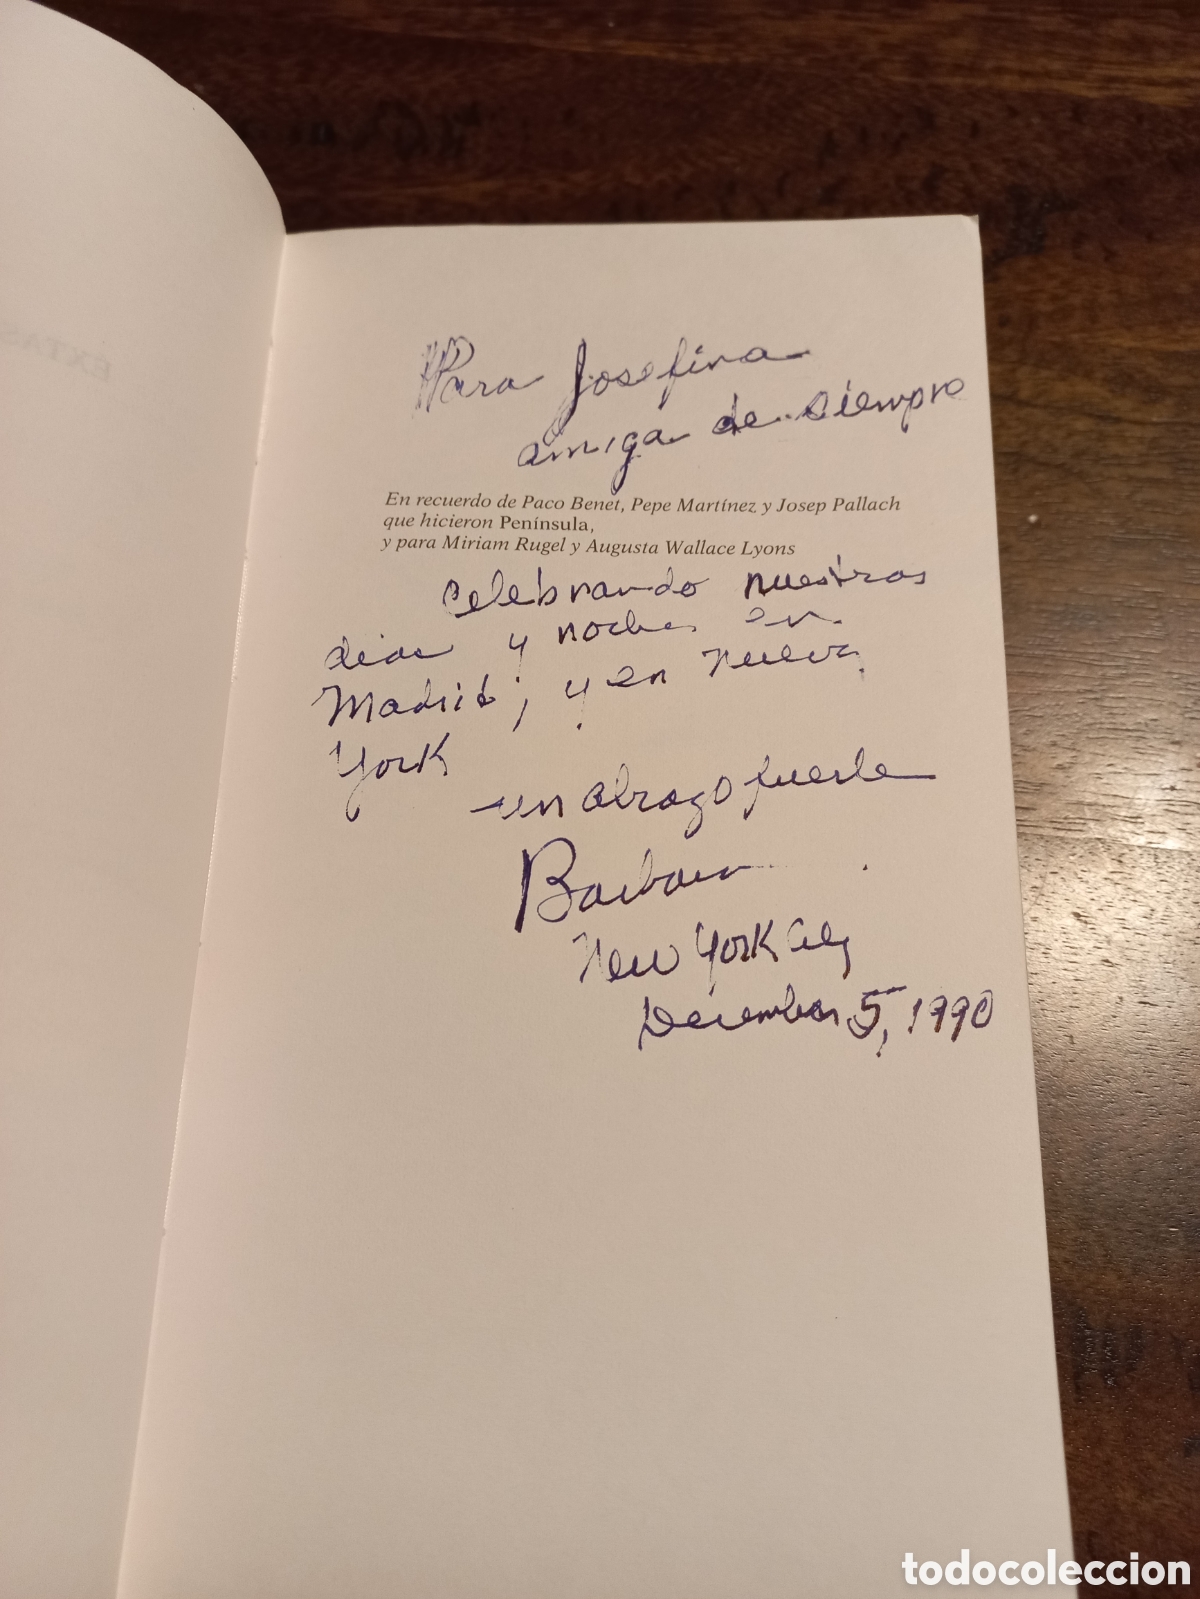 EXTAS
Para Josefina
amiga de siempre
En recuerdo de Paco Benet, Pepe Martínez y Josep Pallach
que hicieron Península,
y para Miriam Rugel y Augusta Wallace Lyons
celebrando nuestros
dias y noches en
Madrid, y en nueva
York
un abrazo fuerte
Barbara
New York City
December 5, 1990
todocoleccion